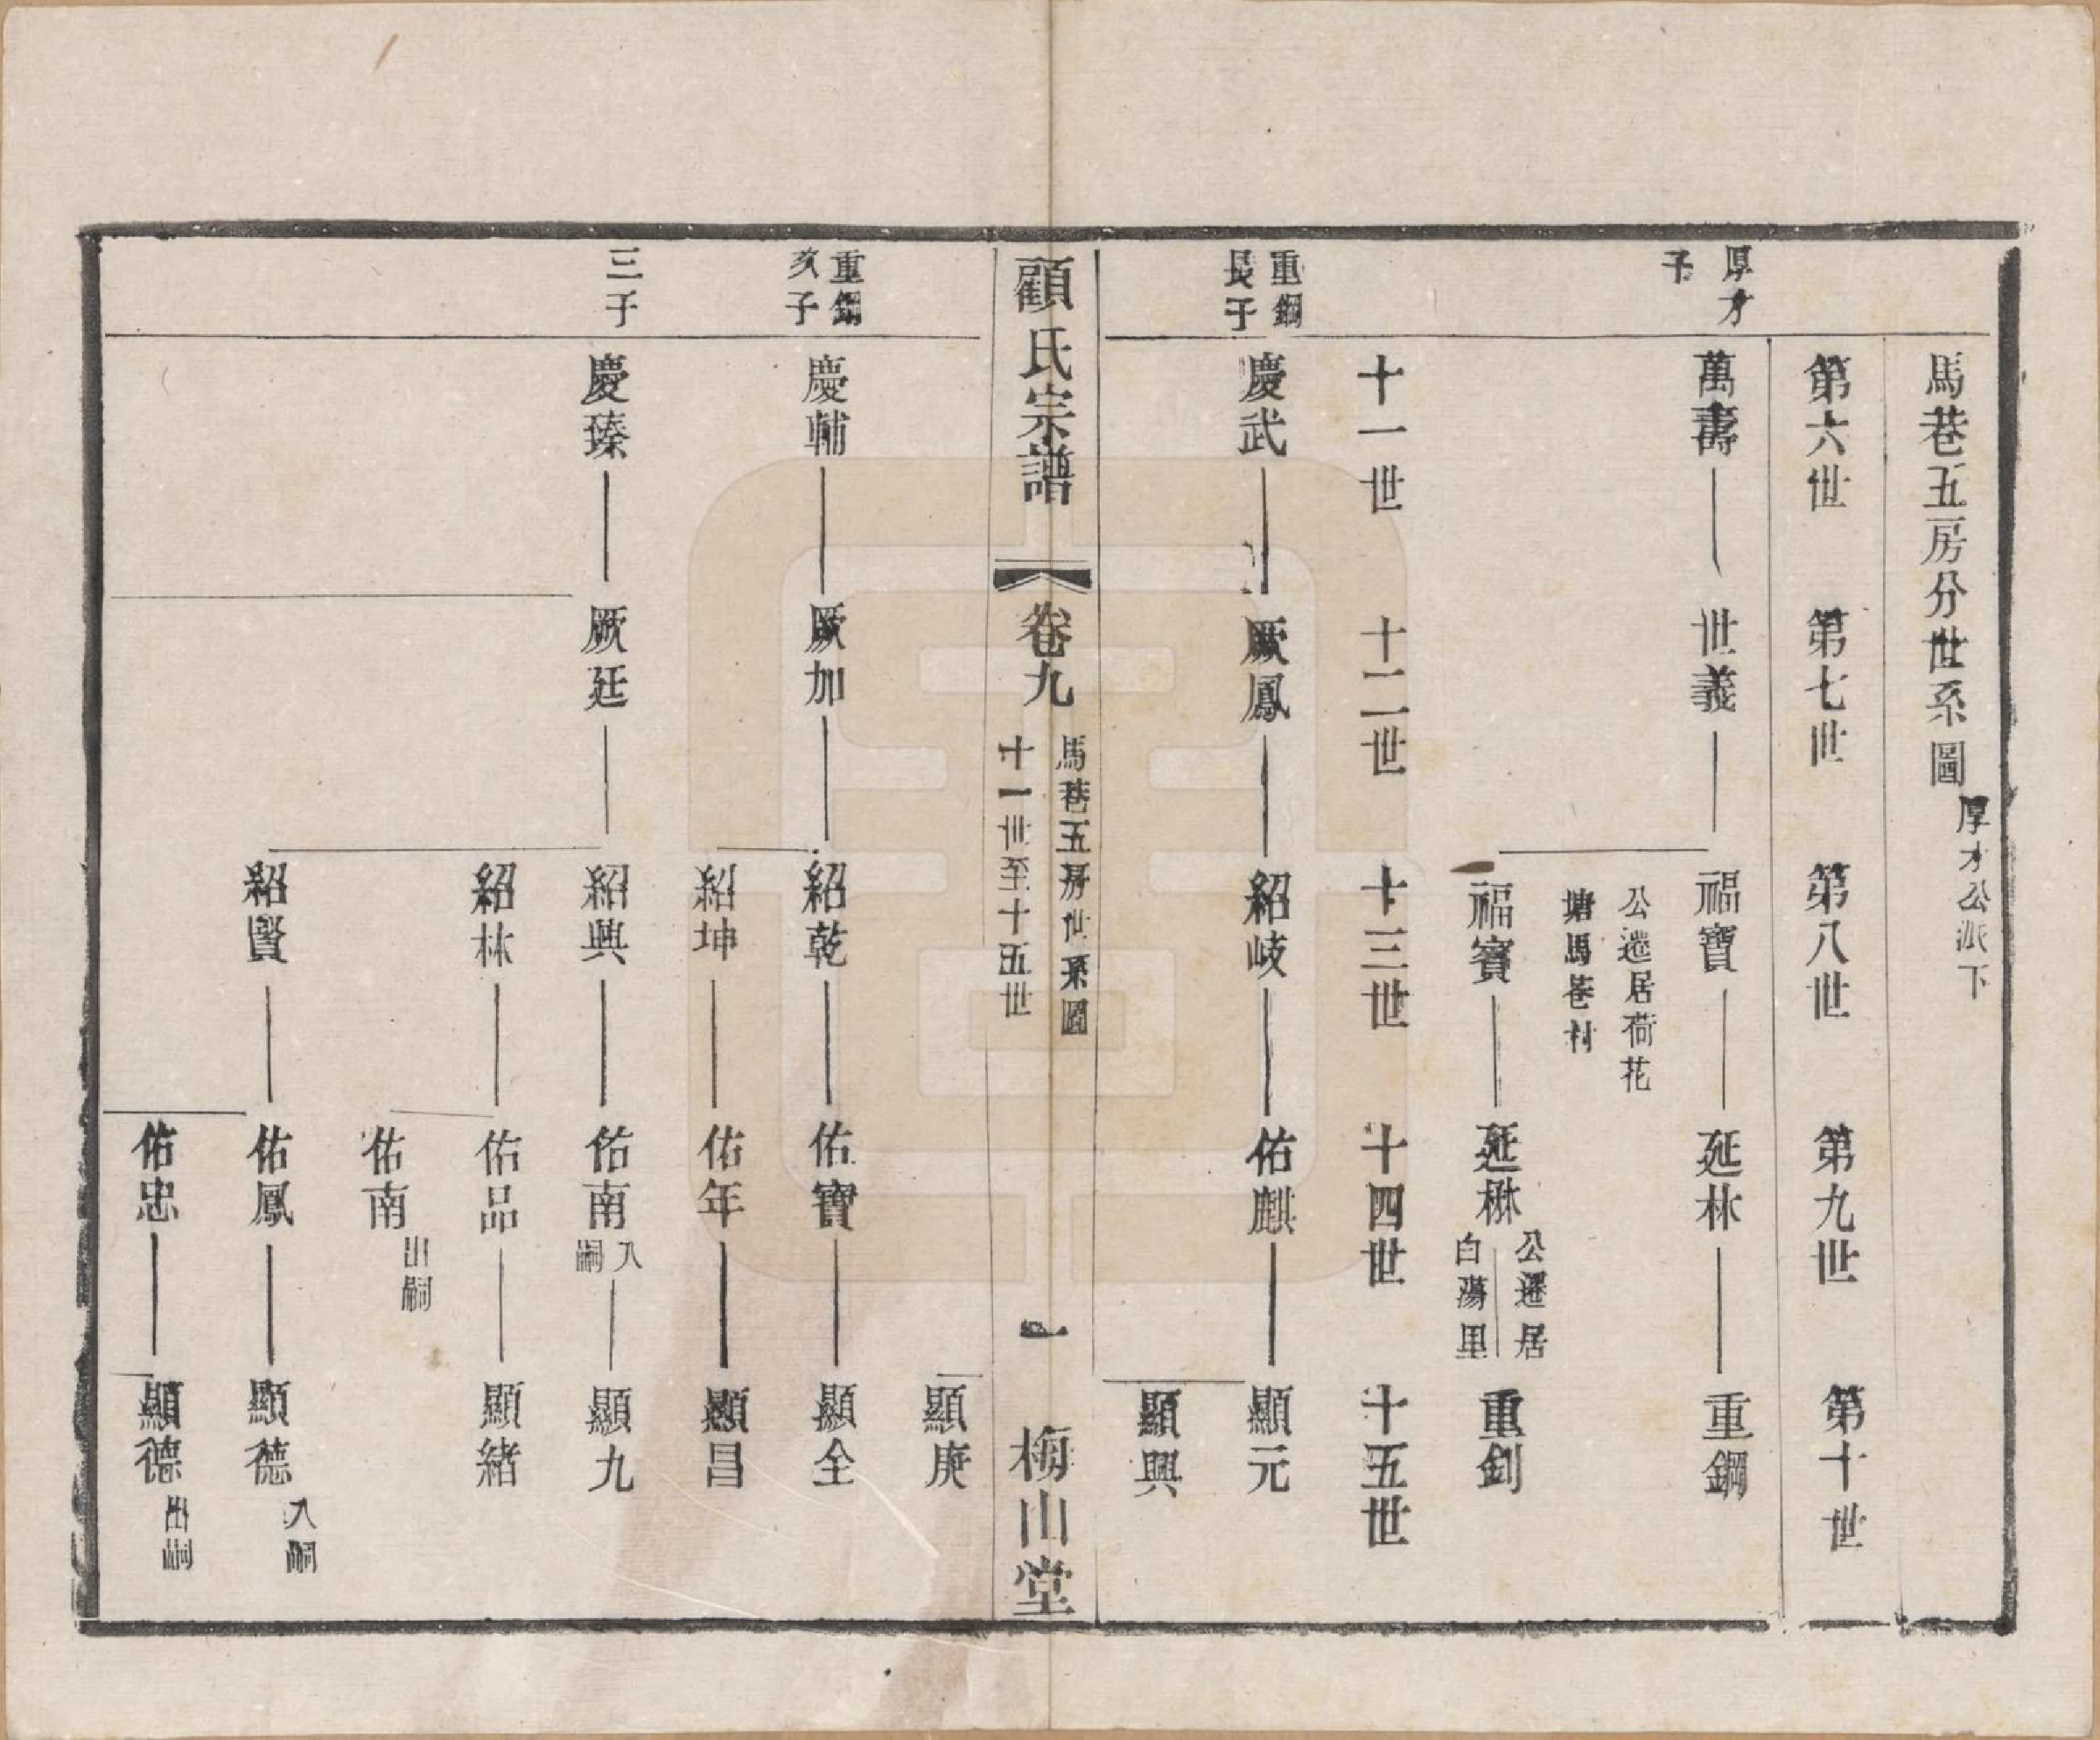 馬巷五房分世系圖 厚才公派下
第六世 第七世 第八世 第九世 第十世
厚才
子
萬壽 世義 福寶 延林 重鋼
公遷居荷花
塘馬巷村
福賓 延楙 重釗
公遷居
白蕩里
十一世 十二世 十三世 十四世 十五世
重鋼
長子
慶武 厥鳳 紹岐 佑麒 顯元
顯興
顧氏宗譜 卷九
馬巷五房世系圖
十一世至十五世
一 梅山堂
顯庚
重鋼
次子
慶輔 厥加 紹乾 佑寶 顯全
紹坤 佑年 顯昌
三子
慶臻 厥廷 紹興 佑南 入嗣 顯九
紹林 佑品 顯緒
佑南 出嗣
紹賢 佑鳳 顯德 入嗣
佑忠 顯德 出嗣